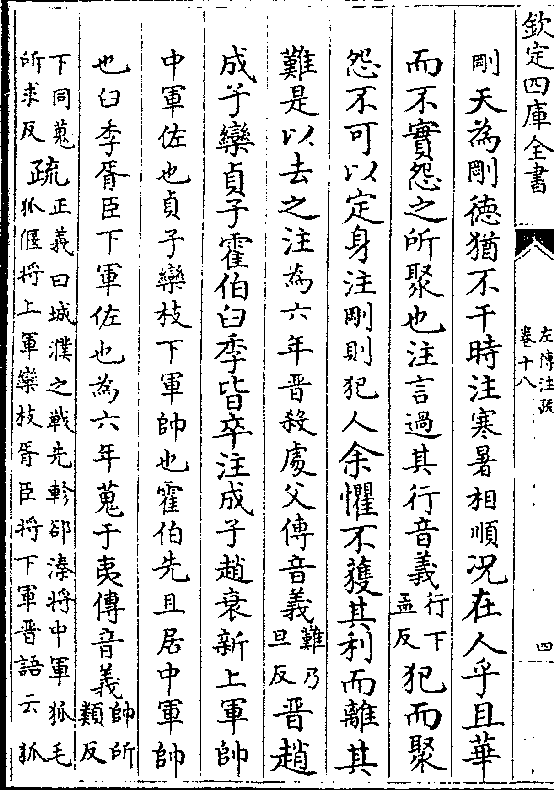 欽定四庫全書
左傳注疏
卷十八
四
剛天為剛德猶不干時注寒暑相順况在人乎且華
而不實怨之所聚也注言過其行音義行下孟反犯而聚
怨不可以定身注剛則犯人余懼不獲其利而離其
難是以去之注為六年晉殺處父傳音義難乃旦反晉趙
成子欒貞子霍伯臼季皆卒注成子趙衰新上軍帥
中軍佐也貞子欒枝下軍帥也霍伯先且居中軍帥
也臼季胥臣下軍佐也為六年蒐于夷傳音義帥所類反
下同蒐所求反疏正義曰城濮之戰先軫郤溱將中軍狐毛狐偃將上軍欒枝胥臣將下軍晋語云狐